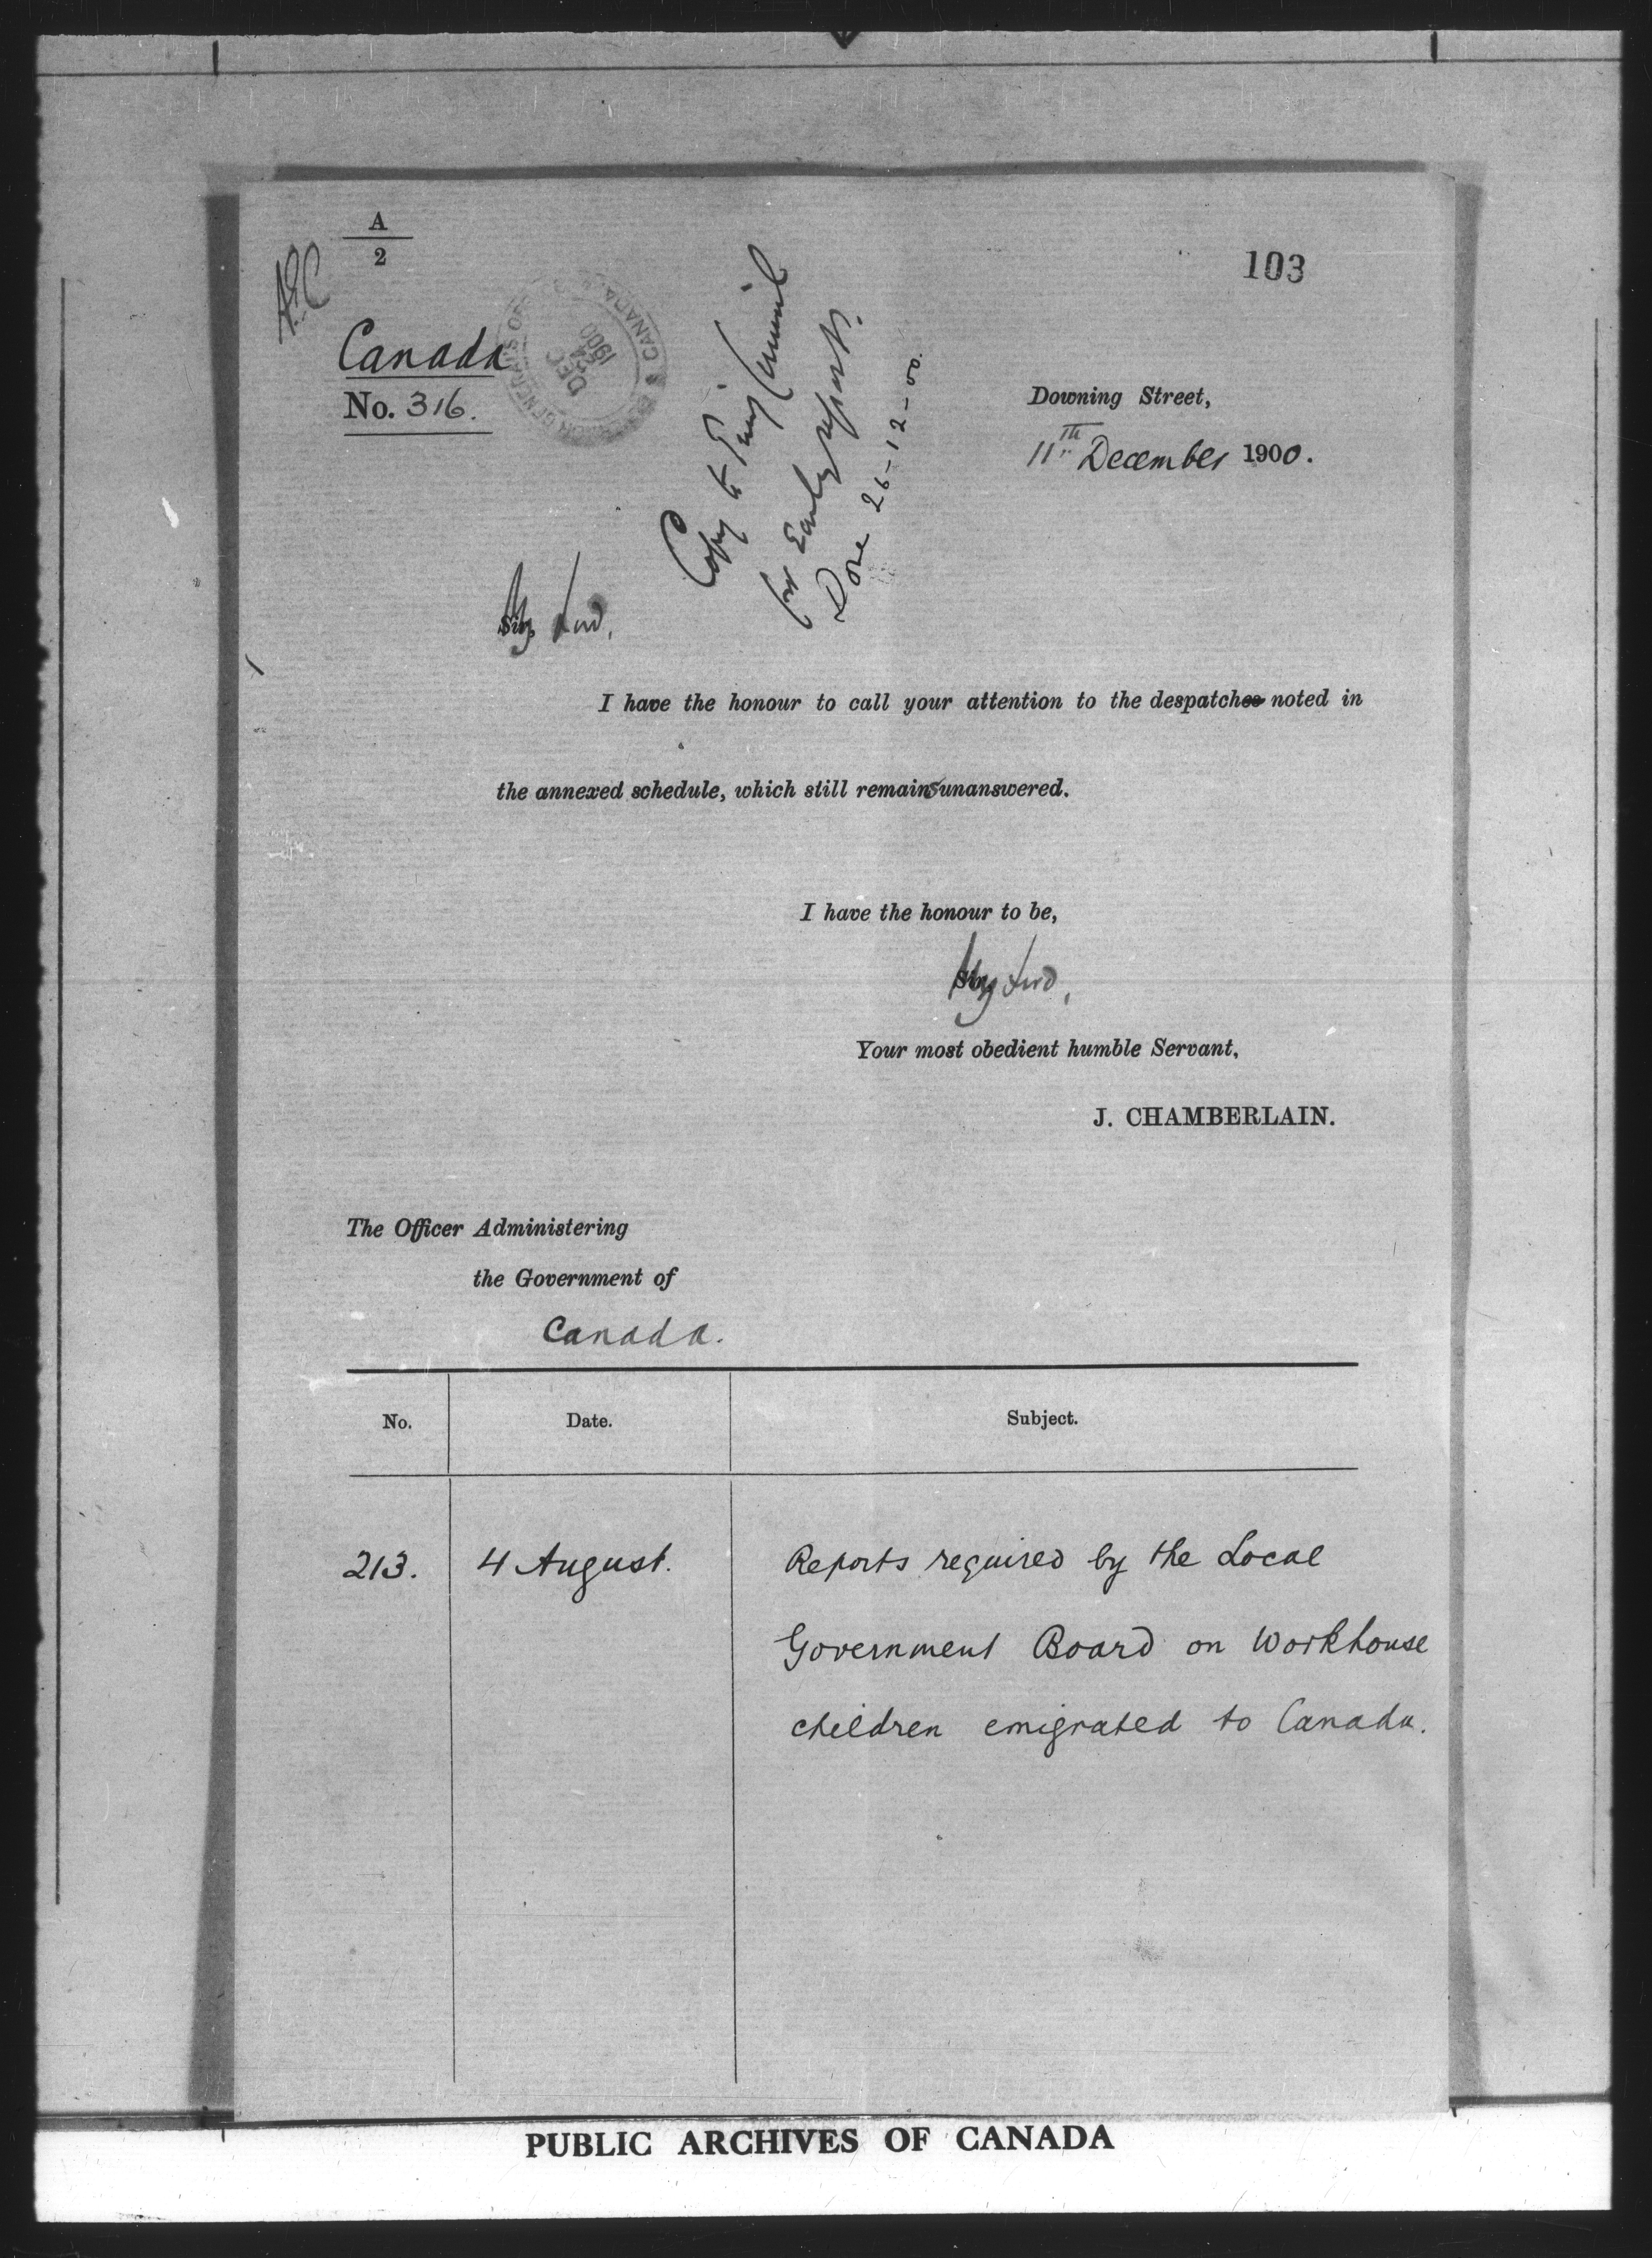 A
2
103
Canada
No. 316.
DEC
24
1900
CANADA
Copy to Privy Council
for Early report.
Done 26-12-00.
Downing Street,
11th December 1900.
My Lord,
I have the honour to call your attention to the despatches noted in
the annexed schedule, which still remains unanswered.
I have the honour to be,
My Lord,
Your most obedient humble Servant,
J. CHAMBERLAIN.
The Officer Administering
the Government of
Canada.
No. Date. Subject.
213. 4 August. Reports required by the Local
Government Board on Workhouse
children emigrated to Canada.
PUBLIC ARCHIVES OF CANADA